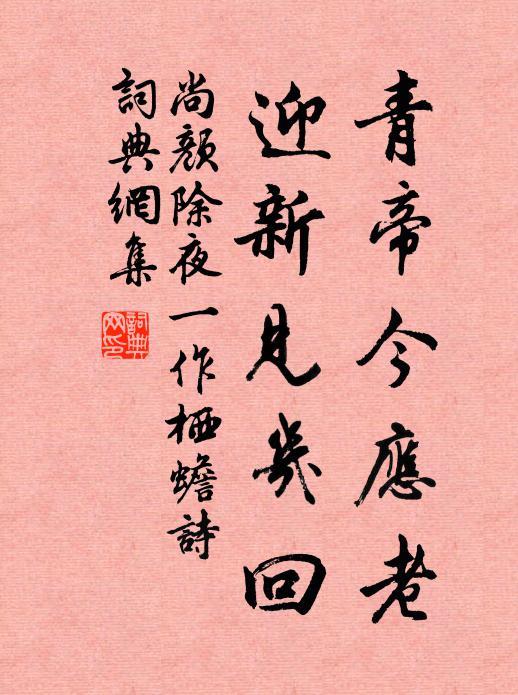 青帝今應老
迎新見幾回
尚顏除夜一作栖蟾詩
詞典網集
詞典
网印